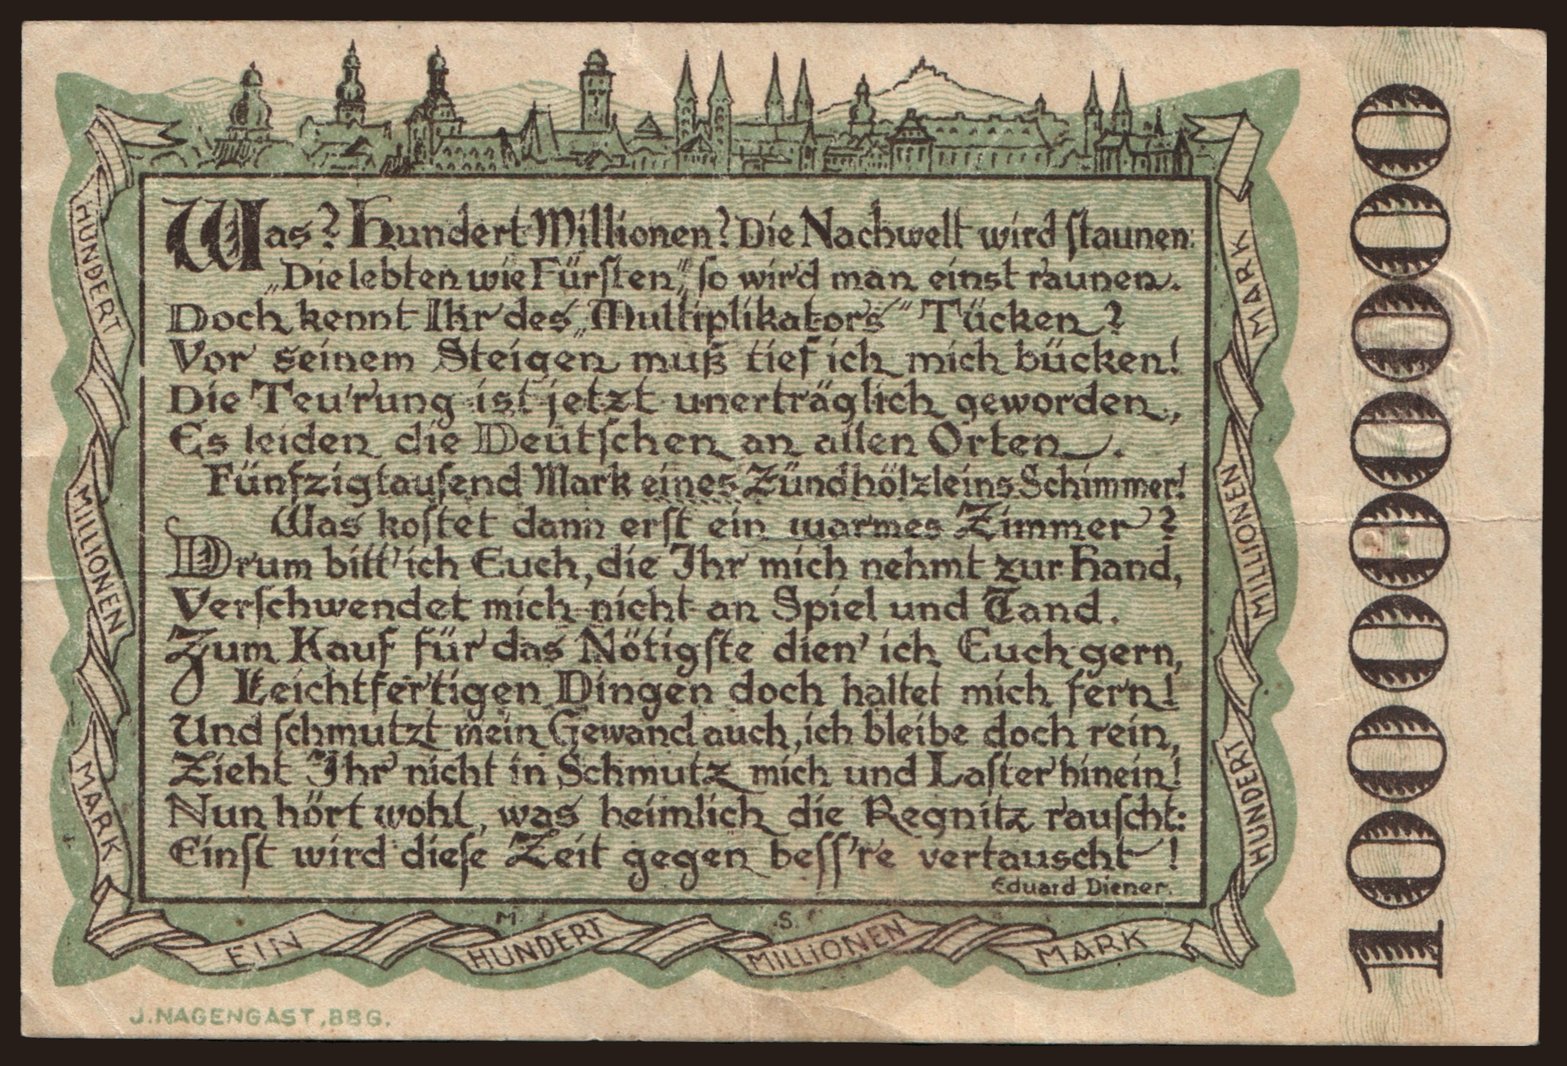 Was? Hundert Millionen? Die Nachwelt wird staunen:
„Die lebten wie Fürsten,“ so wird man einst raunen.
Doch kennt Ihr des „Multiplikators“ Tücken?
Vor seinem Steigen muß tief ich mich bücken!
Die Teu'rung ist jetzt unerträglich geworden,
Es leiden die Deutschen an allen Orten.
Fünfzigtausend Mark eines Zündhölzleins Schimmer!
Was kostet dann erst ein warmes Zimmer?
Drum bitt' ich Euch, die Ihr mich nehmt zur Hand,
Verschwendet mich nicht an Spiel und Tand.
Zum Kauf für das Nötigste dien' ich Euch gern,
Leichtfertigen Dingen doch haltet mich fern!
Und schmutzt mein Gewand auch, ich bleibe doch rein,
Zieht Ihr nicht in Schmutz mich und Laster hinein!
Nun hört wohl, was heimlich die Regnitz rauscht:
Einst wird diese Zeit gegen bess're vertauscht!
Eduard Diener.
HUNDERT MILLIONEN MARK
M. S.
EIN HUNDERT MILLIONEN MARK
HUNDERT MILLIONEN MARK
100000000
J.NAGENGAST,BBG.